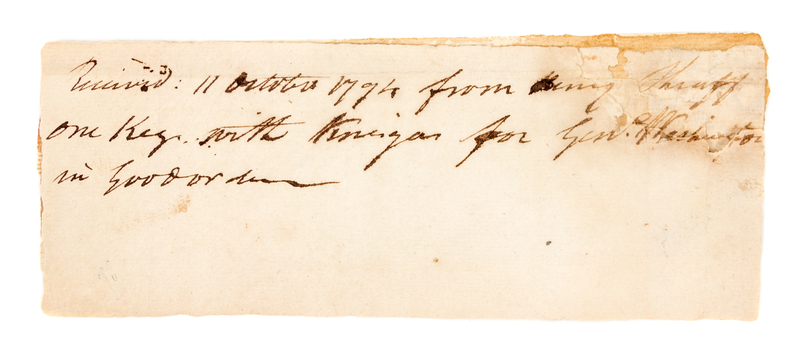 Received: 11 October 1794 from
one Keg. with Vneigar for Genl. Washington
in Good order